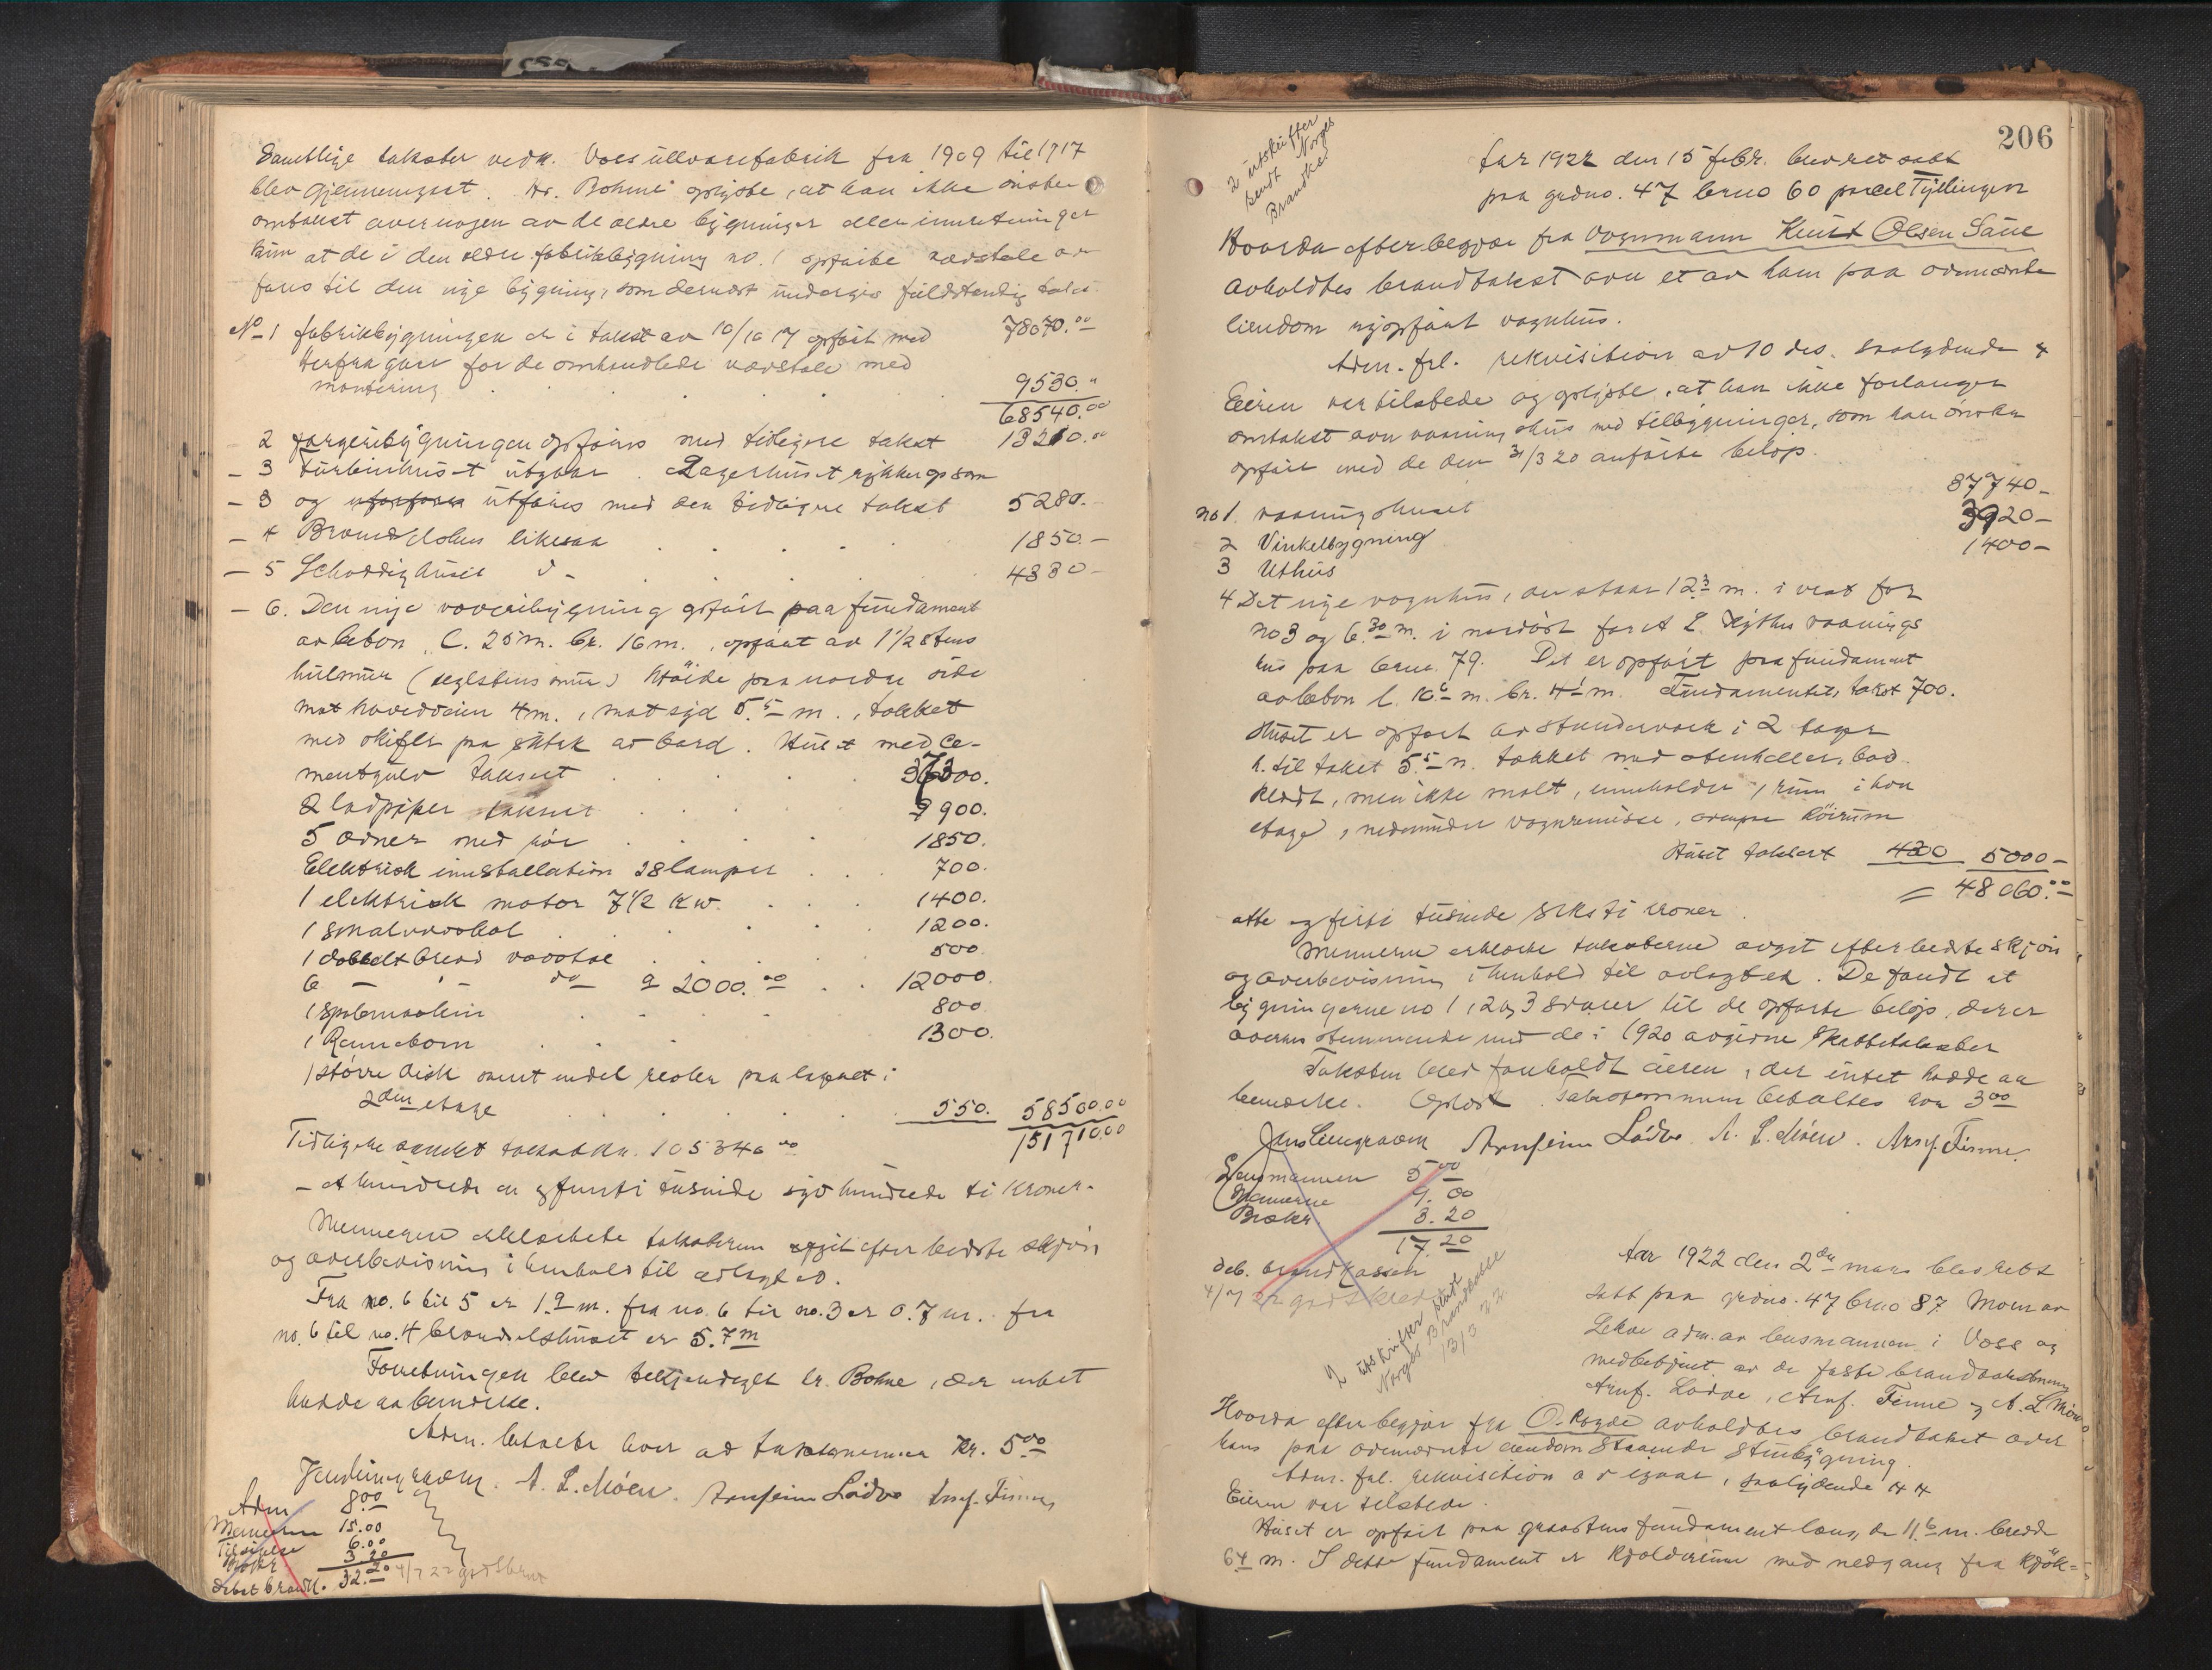 samtlige takster vedk. Voss uldvarefabrik fra 1909 til 1917
blev gjennemgaat. Hr. Bohme oplyste, at han ikke ønsker
omtakst over nogen av de ældre bygninger eller innretninger
kun at de i den ældre fabrikbygning no. 1 opførte vævstole over
føres til den nye bygning, som dernæst undergis fuldstendig takst.
No 1 fabrikbygningen er i takst av 10/10 17 opført med 78070.00
Herfra gaar for de omhandlede vævstole med
montering 9530.-
68540.00
2 farveribygningen opføres med tidligere takst 13210.00
- 3 Turbinhuset utgaar. Lagerhuset rykker op som
- 3 og utføres med den tidligere takst 5280.-
- 4 Brændselshus likesaa 1850.-
- 5 Schoddyhuset do 4330-
- 6. Den nye væveribygning opført paa fundament
av beton, l. 25 m. br. 16 m., opført av 1 1/2 stens
hulmur (teglstensmur) Høide paa nordre side
mot hovedveien 4 m., mot syd 5.5 m., tækket
med skifer paa sutak av bord. Huset med ce-
mentgulv taksert 37300.
2 ladpiper taksert 900.
5 ovner med rør 1850.
Elektrisk innstallation 28 lamper 700.
1 elektrisk motor 7 1/2 kw. 1400.
1 smalvævstol 1200.
1 dobbeltbred vævstol 500.
6 - do a 2000.00 12000.
1 spolemaskin 800
1 Rennebom 1300.
1 større disk samt endel reoler paa lageret i
2den etage 550. 58500.00
Tidligere samlet takst kr. 105340.00 151710.00
- et hundrede en og femti tusinde syv hundrede ti kroner.
Mennene erklærte taksterne avgit efter bedste skjøn
og overbevisning i henhold til avlagt ed.
Fra no. 6 til 5 er 1.9 m. fra no. 6 til no. 3 er 0.7 m. fra
no. 6 til no. 4 brændselshuset er 5.7 m
Forretningen blev bekjendtgjort hr. Bohme, der intet
hadde at bemerke.
Adm. betalte hver av takstmennene kr. 5.00
A. L. Møen. Arnfinn Lødve Arnf. Finne
Adm 8.00
Mennerne 15.00
6.00
3.20
Debet brandk. 32.20 4/7 22 godskrevet
206
2 utskrifter
sendt Norges
Brandkas
Aar 1922 den 15 febr. blev ret satt
paa grdno. 47 brno 60 parcel Tykkingen
Hvorda efter begjær fra vognmann Knut Olsen Saue
avholdtes brandtakst over et av ham paa ovennævnte
eiendom nyopført vognhus.
Adm. frl. rekvisition av 10 ds. saalydende 4
Eieren var tilstede og oplyste, at han ikke forlanger
omtakst over vaaningshus med tilbygninger, som han ønsker
opført med de den 31/3 20 anførte beløp.
no 1. vaaningshuset 37740-
2 Vinkelbygning 3920-
3 Uthus 1400-
4 Det nye vognhus, der staar 12.3 m. i vest for
no 3 og 6.30 m. i nordøst for A. L. vaanings
hus paa brno. 79. Det er opført paa fundament
av beton l. 10.6 m. br. 4.1 m. Fundamentets takst 700.
Huset er opført av stenderværk i 2 etager
h. til taket 5.5 m. tækket med stenheller, bord
klædt, men ikke malt, inneholder 1 rum i hver
etage, nedenunder vognremisse, ovenpaa høirum
Huset taksert 4300 5000-
= 48060.00
otte og firti tusinde seksti kroner.
Mennene erklærte taksterne avgit efter bedste skjøn
og overbevisning i henhold til avlagt ed. De fandt at
bygningerne no 1, 2 og 3 svarer til de opførte beløp, der er
overensstemmende med de i 1920 avgivne skattetakster
Taksten blev foreholdt eieren, der intet hadde at
bemerke. Oplæst. Takstmennene betaltes hver 3.00
Arnfinn Lødve A. L. Møen. Arnf. Finne.
Lensmannen 5.00
Mennerne 9.00
Brokr. 3.20
17.20
deb. brandkassen
4/7 22 godskrevet
2 utskrifter sendt
Norges Brandkasse
13/3 22
Aar 1922 den 2den mars blev rett
satt paa grdno. 47 brno 87 Moen av
Lekve adm. av lensmannen i Voss og
medbetjent av de faste brandtakstmenn
Arnf. Lødve, Arnf. Finne og A. L. Møen
Hvorda efter begjær fra O. Rogde avholdtes brandtakst over
hans paa ovennævnte eiendom staaende stuebygning.
Adm. frl. rekvisition av igaar, saalydende 44
Eieren var tilstede.
Huset er opført paa graastens fundament længde 11.6 m. bredde
6.4 m. I dette fundament er kjelderrum med nedgang fra kjøk-